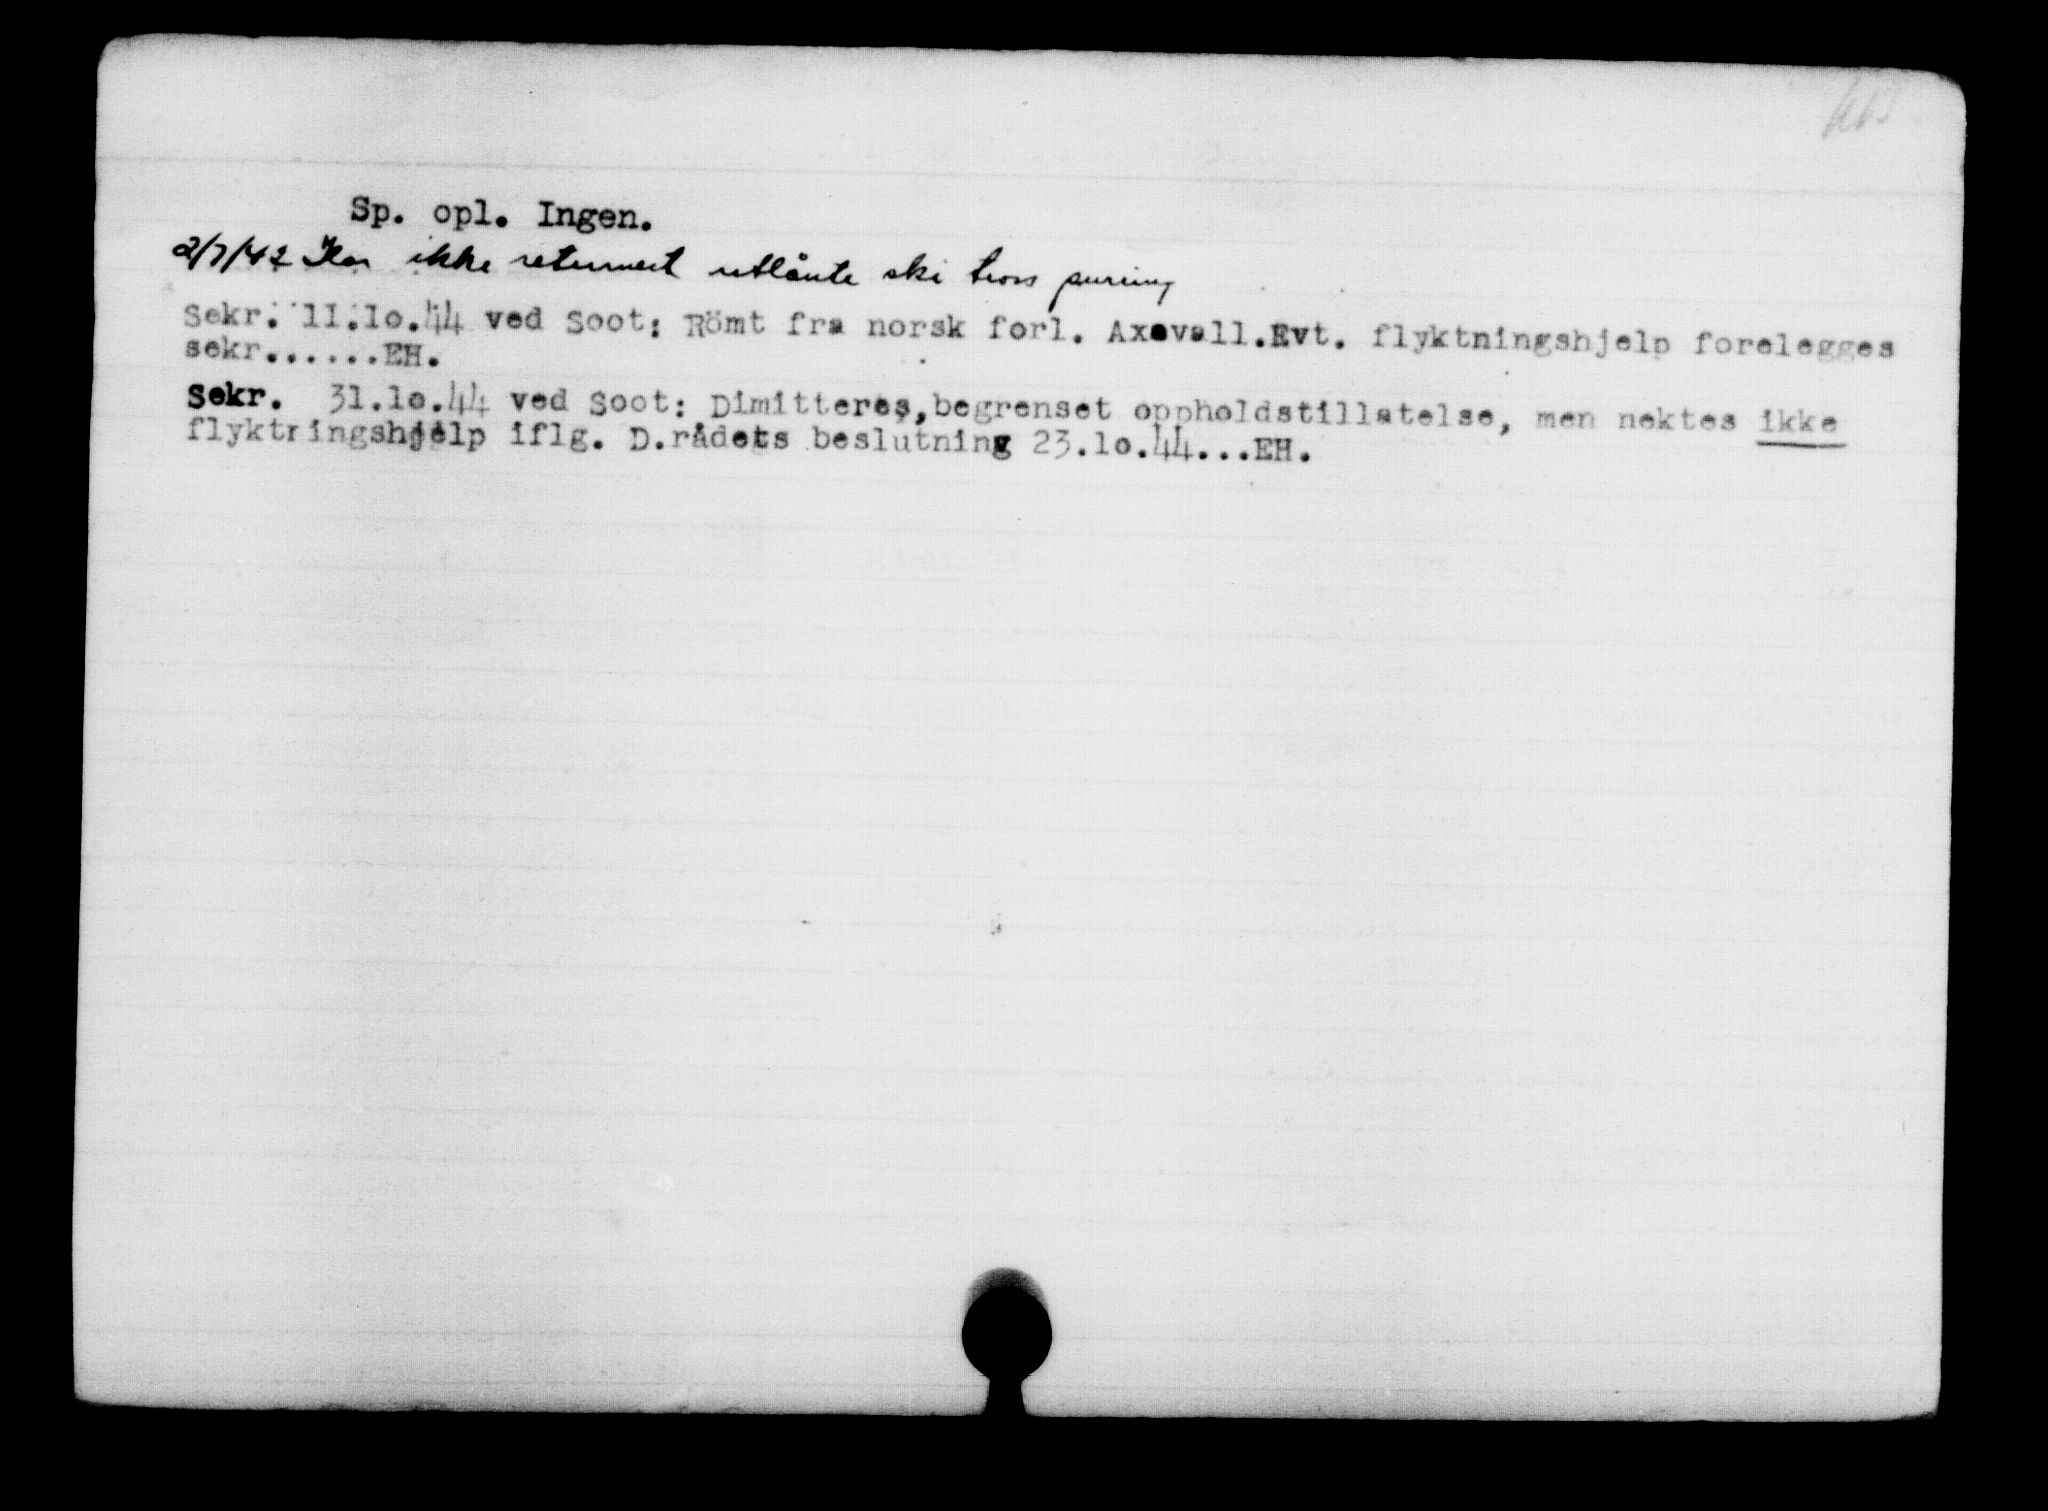 Sp. opl. Ingen.
2/7/42 Har ikke returnert utlånte ski tross purring
Sekr. 11.10.44 ved Soot: Römt fra norsk forl. Axevall.Evt. flyktningshjelp forelegges
sekr......EH.
Sekr. 31.10.44 ved Soot: Dimitteres,begrenset oppholdstillatelse, men nektes ikke
flyktningshjelp iflg. D.rådets beslutning 23.10.44...EH.